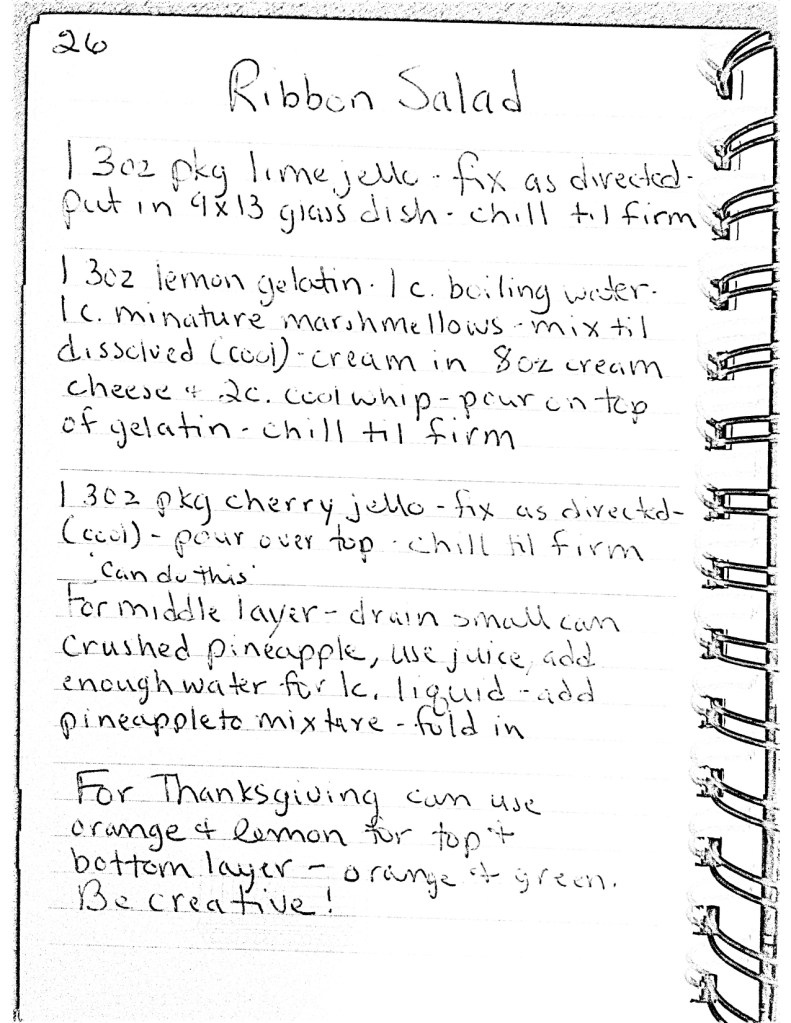 26
Ribbon Salad
1 3oz pkg lime jello - fix as directed -
put in 9x13 glass dish - chill til firm
1 3oz lemon gelatin - 1 c. boiling water -
1 c. minature marshmellows - mix til
dissolved (cool) - cream in 8oz cream
cheese & 2c. cool whip - pour on top
of gelatin - chill til firm
1 3oz pkg cherry jello - fix as directed -
(cool) - pour over top - chill til firm
"can do this"
For middle layer - drain small can
crushed pineapple, use juice, add
enough water for 1c. liquid - add
pineapple to mixture - fold in
For Thanksgiving can use
orange & lemon for top &
bottom layer - orange & green.
Be creative!